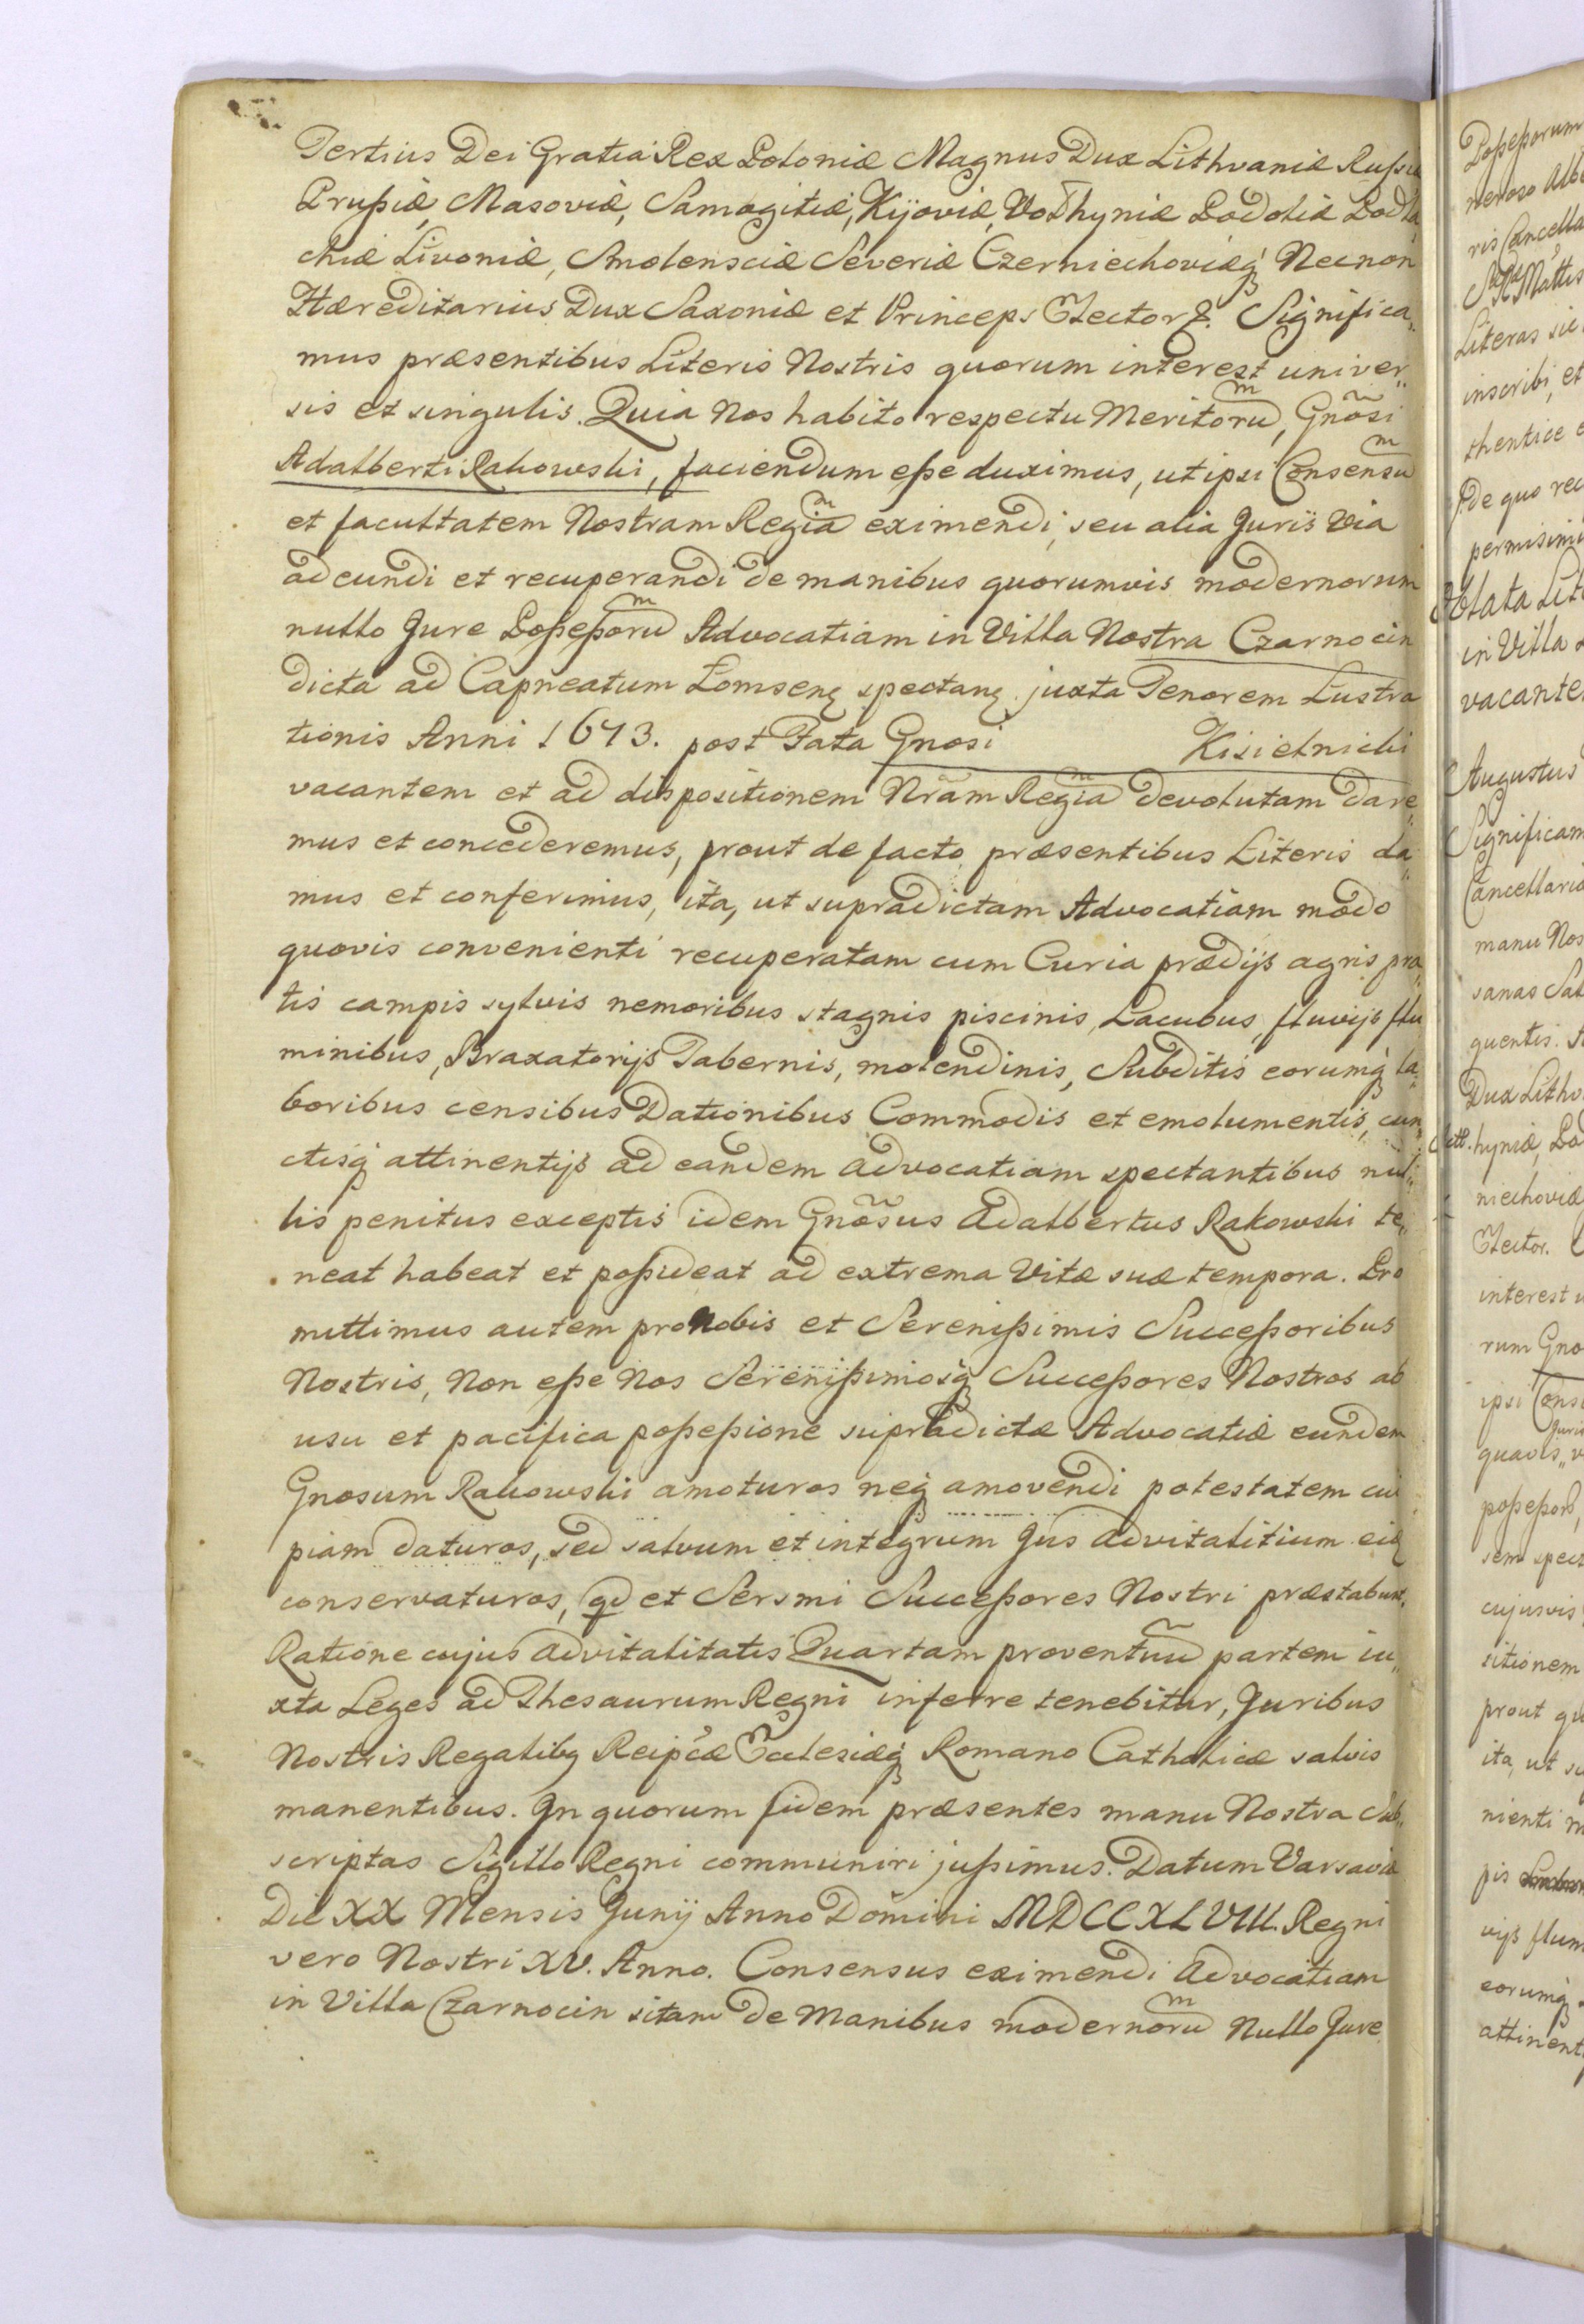 Tertius Dei Gratia Rex Poloniæ Magnus Dux Lithvaniæ Russiæ
Prussiæ, Masoviæ, Samogitiæ, Kijoviæ, Volhyniæ Podoliæ Podla
chiæ Livoniæ, Smolensciæ Severiæ Czerniechoviæq́ Necnon
Hæreditarius Dux Saxoniæ et Princeps Elector &. Significa„
mus præsentibus Literis Nostris quorum interest univer„
sis et singulis. Quia Nos habito respectu Meritoru͞m, Gnõsi
Adalberti Rakowski, faciendum esse duximus, ut ipsi Consensu͞m
et facultatem Nostram Regia͞m eximendi, seu alia Juris Via
adeundi et recuperandi de manibus quorumvis modernorum
nullo Jure Possessoru͞m Advocatiam in Villa Nostra Czarnocin
dicta ad Capneatum Łomsenę spectanę juxta Tenorem Lustra
tionis Anni 1673. post Fata Gnosi Kisielnicki
vacantem et ad dispositionem Nram̃ Regia͞m devolutam dare„
mus et concederemus, prout de facto præsentibus Literis da„
mus et conferimus, ita, ut supradictam Advocatiam modo
quovis convenienti recuperatam cum Curia prædijs agris pra„
tis campis sylvis nemoribus stagnis piscinis, Lacubus, fluvijs flu
minibus, Braxatorijs Tabernis, molendinis, Subditis eorumq́ la„
boribus censibus Dationibus Commodis et emolumentis, cun„
ctisq́ attinentijs ad eandem advocatiam spectantibus nul„
lis penitus exceptis idem Gnõsus Adalbertus Rakowski te„
neat habeat et possideat ad extrema Vitæ suæ tempora. Pro
mittimus autem pro Nobis et Serenissimis Successoribus
Nostris, Non esse Nos Serenissimosq́ Successores Nostros ab
usu et pacifica possessione supradictæ Advocatiæ eundem
Gnosum Rakowski amoturos neq́ amovendi potestatem cui
piam daturos, sed salvum et integrum Jus advitalitium eidę
conservaturos, qd et Sersmi Successores Nostri præstabunt.
Ratione cujus advitalitatis Quartam proventuũ partem iu„
xta Leges ad Thesaurum Regni inferre tenebitur, Juribus
Nostris Regalibq Reipcæ Ecclesiæq́ Romano Catholicæ salvis
manentibus. In quorum fidem præsentes manu Nostra Sub„
scriptas Sigillo Regni communiri jussimus. Datum Varsaviæ
Die XX Mensis Junij Anno Domini MDCCXLVIII. Regni
vero Nostri XV. Anno. Consensus eximendi Advocatiam
in Villa Czarnocin sitam de Manibus modernoru͞m Nullo Jure
Possessorum
neroso Alb
ris Cancella
Literas sic
inscribi, et
thentice e
de quo rec
permisimu
Oblata Lit
in Villa
vacante
Augustus
Significam
Cancellaria
manu Nos
sanas Sal
quentis.
Dux Lithv
hyniæ, Po
niechoviæ
Elector.
interest u
rum Gno
ipsi Cons
Juris
quavis „v
possessorũ,
sem spect
cujusvis
sitionem
prout qu
ita, ut su
nienti m
pis
vijs flum
eorumq́
attinent